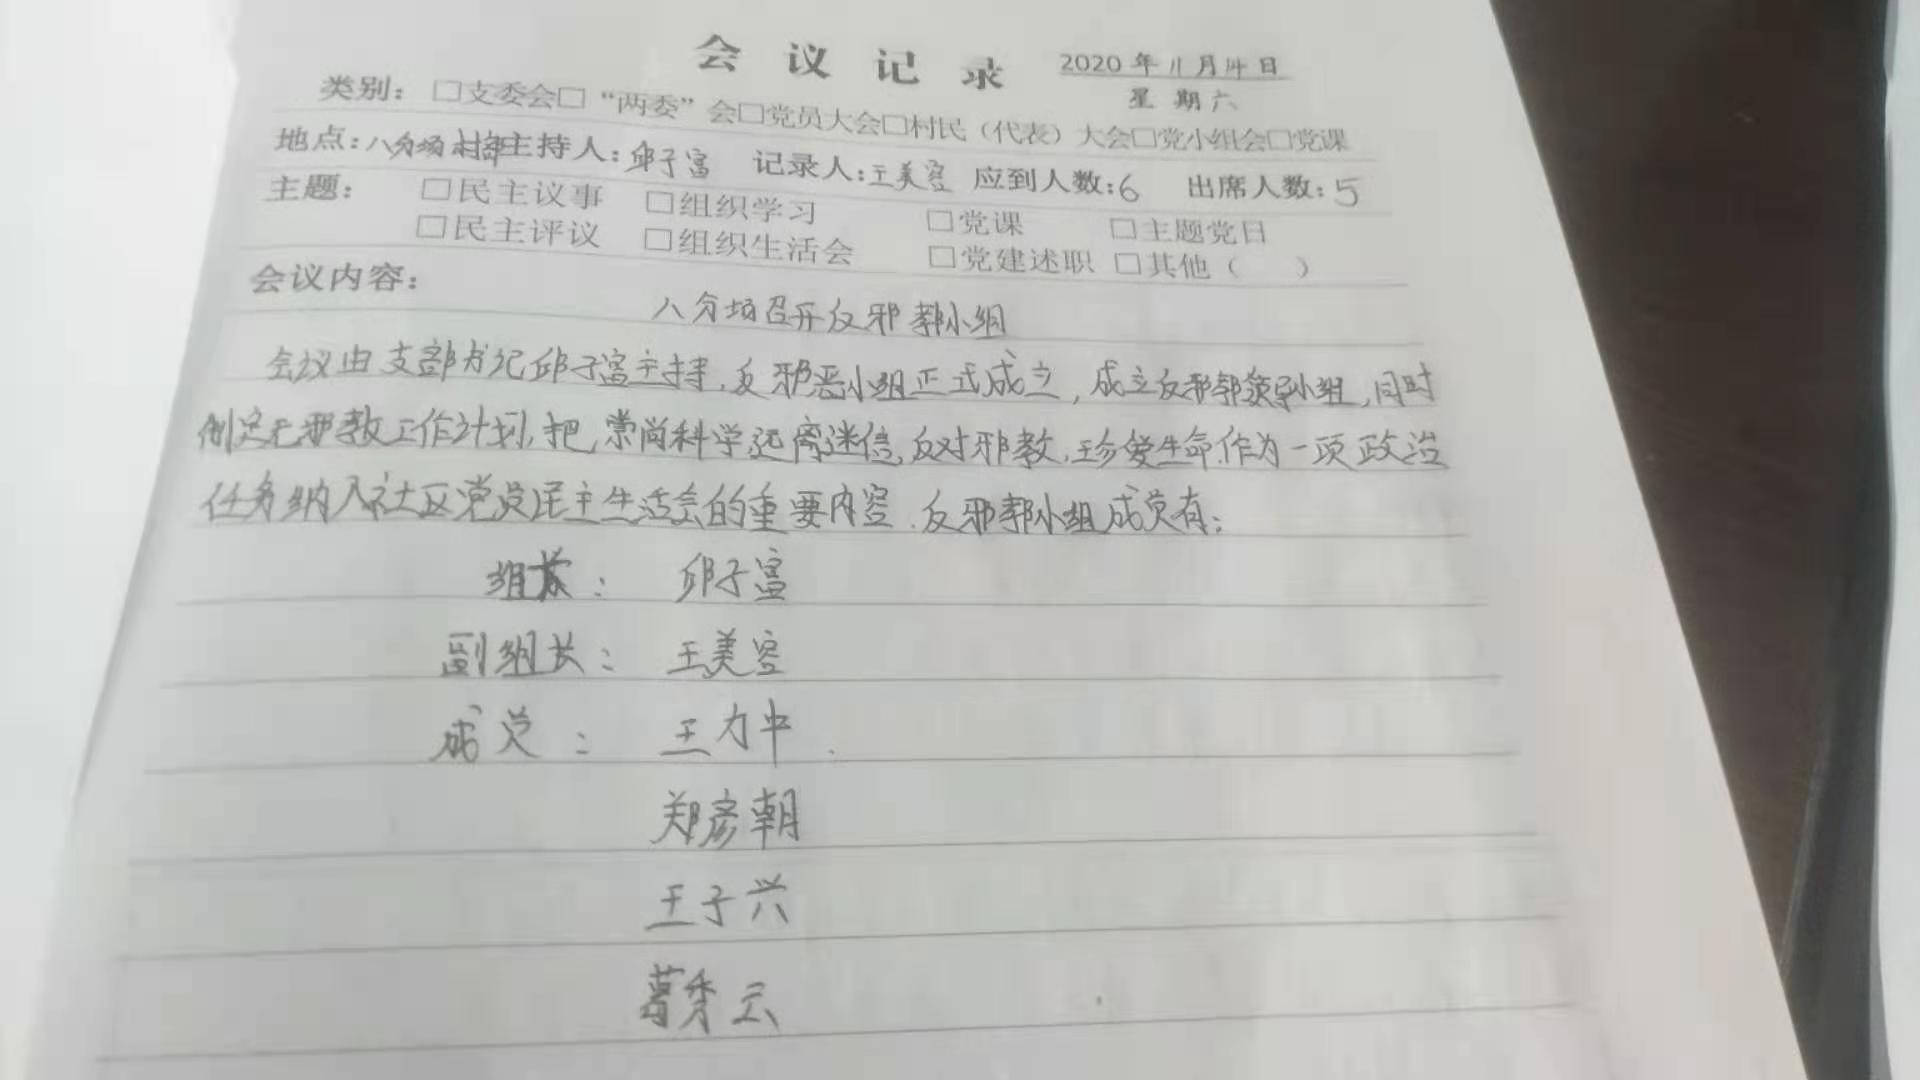 会议记录 2020年11月14日
星期六
类别：□支委会□“两委”会□党员大会□村民（代表）大会□党小组会□党课
地点：八分场村部主持人：邱子富 记录人：王美容 应到人数：6 出席人数：5
主题： □民主议事 □组织学习 □党课 □主题党日
□民主评议 □组织生活会 □党建述职 □其他（ ）
会议内容：
八分场召开反邪教小组
会议由支部书记邱子富主持，反邪恶小组正式成立，成立反邪教领导小组，同时
制定无邪教工作计划，把，崇尚科学，远离迷信，反对邪教，珍爱生命，作为一项政治
任务纳入社区党员民主生活会的重要内容．反邪教小组成员有：
组长： 邱子富
副组长： 王美容
成员： 王力中．
郑彦朝
王子兴
葛秀云